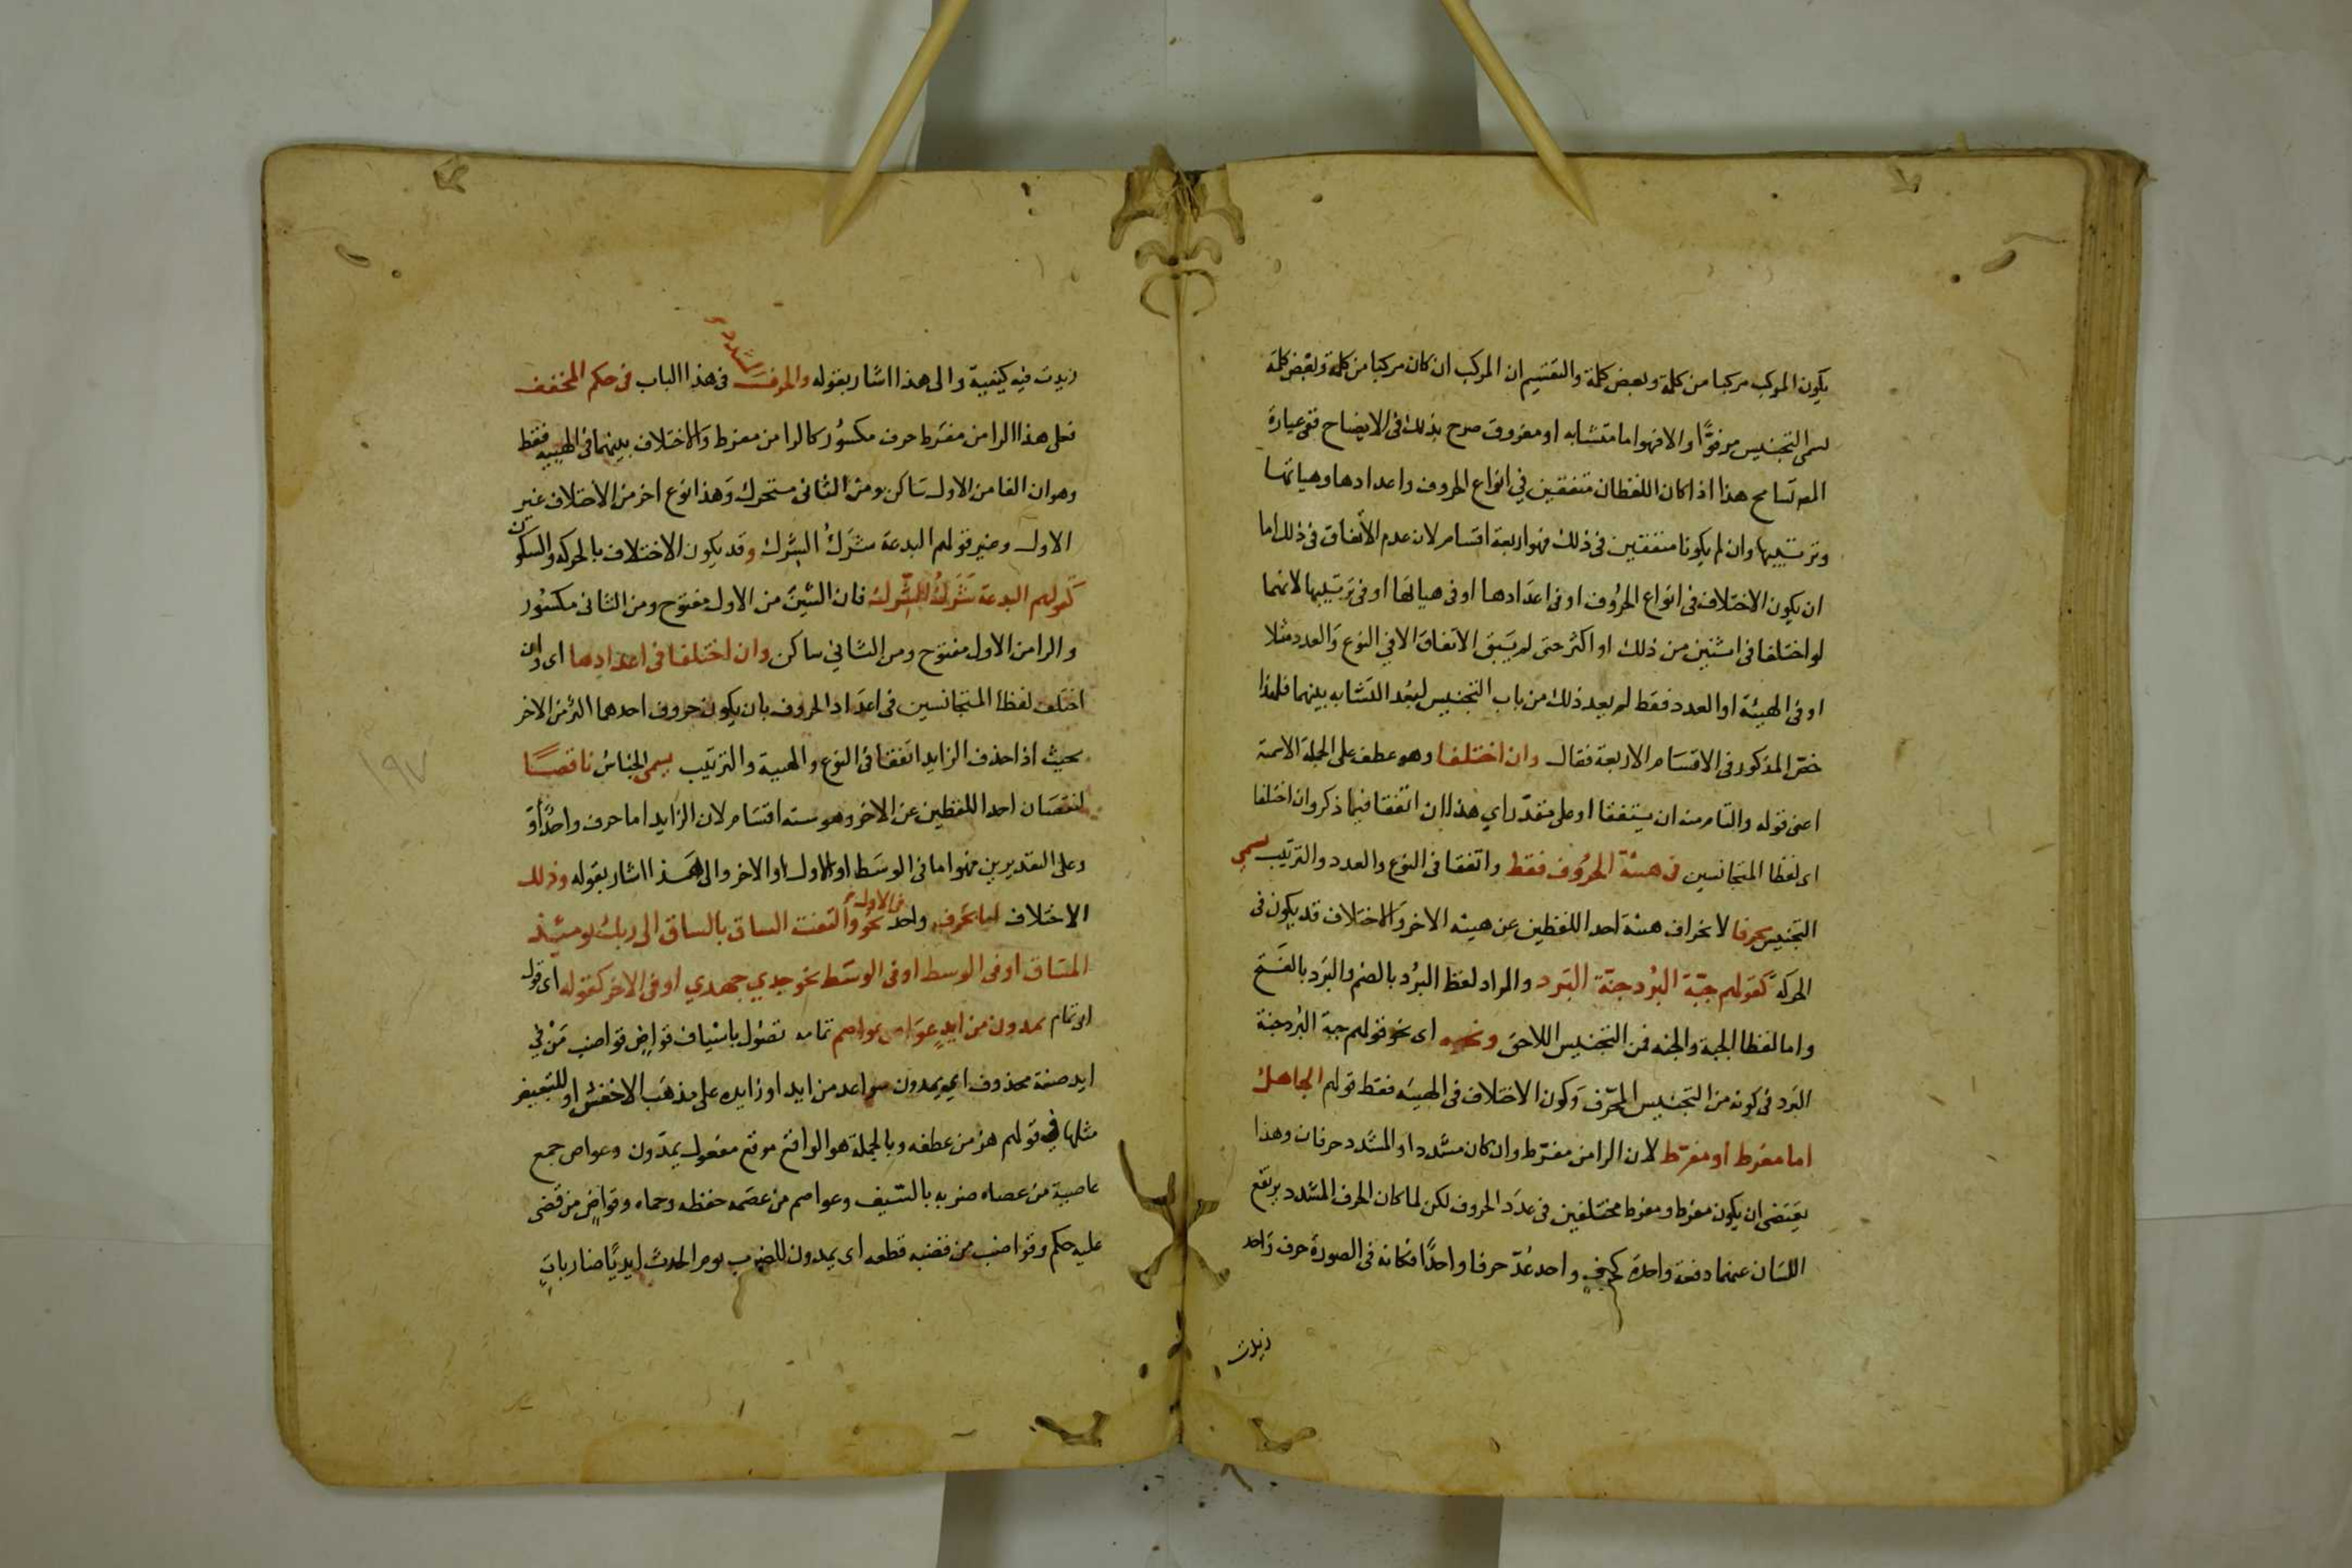 يكون المركب مركبا من كلمة وبعض كلمة والتقسيم ان المركب ان كان مركبا من كلمة وبعض كلمة
يسمى التجنيس مرفوًّا والا فهو اما متشابه او مفروق صرح بذلك فى الايضاح ففى عبارة
المص تسامح هذا اذا كان اللفظان متفقين في انواع الحروف واعدادها وهياتها
وترتيبها وان لم يكونا متفقين فى ذلك فهو اربعة اقسام لان عدم الاتفاق فى ذلك اما
ان يكون الاختلاف فى انواع الحروف او فى اعدادها او فى هياتها او فى ترتيبها لانهما
لو اختلفا فى اثنين من ذلك او اكثر حتى لم يبق الاتفاق الا في النوع والعدد مثلا
او فى الهيئة او العدد فقط لم يعد ذلك من باب التجنيس لبعد التشابه بينهما فلهذا
حصر المذكور فى الاقسام الاربعة فقال وان اختلفا وهو عطف على الجملة الاسمية
اعنى قوله والتام منه ان يتفقا او على مقدر اي هذا ان اتفقا فيما ذكر وان اختلفا
اى لفظا المتجانسين فى هيئة الحروف فقط واتفقا فى النوع والعدد والترتيب يسمى
التجنيس محرفا لانحراف هيئة احد اللفظين عن هيئه الاخر والاختلاف قد يكون فى
الحركة كقولهم جبّة البُرد جنّة البَرد والمراد لفظ البُرد بالضم والبَرد بالفتح
واما لفظا الجبة والجنه فمن التجنيس اللاحق ونحوه اى نحو قولهم جبة البُرد جنة
البَرد فى كونه من التجنيس المحرّف وكون الاختلاف فى الهيئه فقط قولهم الجاهل
اما مفرط او مفرّط لان الرا من مفرّط وان كان مشدد او المشدد حرفان وهذا
يقتضى ان يكون مفرّط ومفرط مختلفين فى عدد الحروف لكن لما كان الحرف المشدد يرتفع
اللسان عنهما دفعة واحدة كحرفٍ واحد عُدّ حرفا واحدًا فكانه فى الصورة حرف واحد
زيدت
زيدت فيه كيفيية والى هذا اشار بقوله والحرف المشدد فى هذا الباب فى حكم المخفف
فعلى هذا الرا من مفرّط حرف مكسور كالرا من مفرط والاختلاف بينهما فى الهيية فقط
وهو ان الفا من الاول ساكن ومن الثانى متحرك وهذا نوع اخر من الاختلاف غير
الاول وغير قولهم البدعة شَرَكُ الشِّرك وقد يكون الاختلاف بالحركه والسكون
كقولهم البدعة شَرَكُ الشِّرك فان الشين من الاول مفتوح ومن الثانى مكسور
والرا من الاول مفتوح ومن الثاني ساكن وان اختلفا فى اعدادها اى وان
اختلف لفظا المتجانسين فى اعداد الحروف بان يكون حروف احدهما اكثر من الاخر
بحيث اذا حذف الزايد اتفقا فى النوع والهيية والترتيب يسمى الجناس ناقصًا
لنقصان احد اللفظين عن الاخر وهو سته اقسام لان الزايد اما حرف واحدٌ او
وعلى التقديرين فهو اما فى الوسط او الاول او الاخر والى هذا اشار بقوله وذلك
الاختلاف اما بحرف واحد فى الاول نحو والتفت الساق بالساق الى ربك يومئذ
المساق او فى الوسط او فى الوسط نحو جدي جهدي او فى الاخر كقوله اى قول
ابى تمام يمدون من ايدٍ عواصٍ عواصم تمامه تصول باسياف قواضٍ قواضب مَنْ في
ايد صفة محذوف اى يمدون سواعد من ايد او زايده على مذهب الاخفش او للتبعيض
مثلها فى قولهم هز من عطفه وبالجملة هو الواقع موقع مفعول يمدّون وعواص جمع
عاصية من عصاه ضربه بالسيف وعواصم من عصمه حفظه وحماه وقواضٍ من قضى
عليه حكم وقواضب من قضبه قطعه اى يمدون للضرب يوم الحرب ايديًا ضارباتٍ
١٩٧